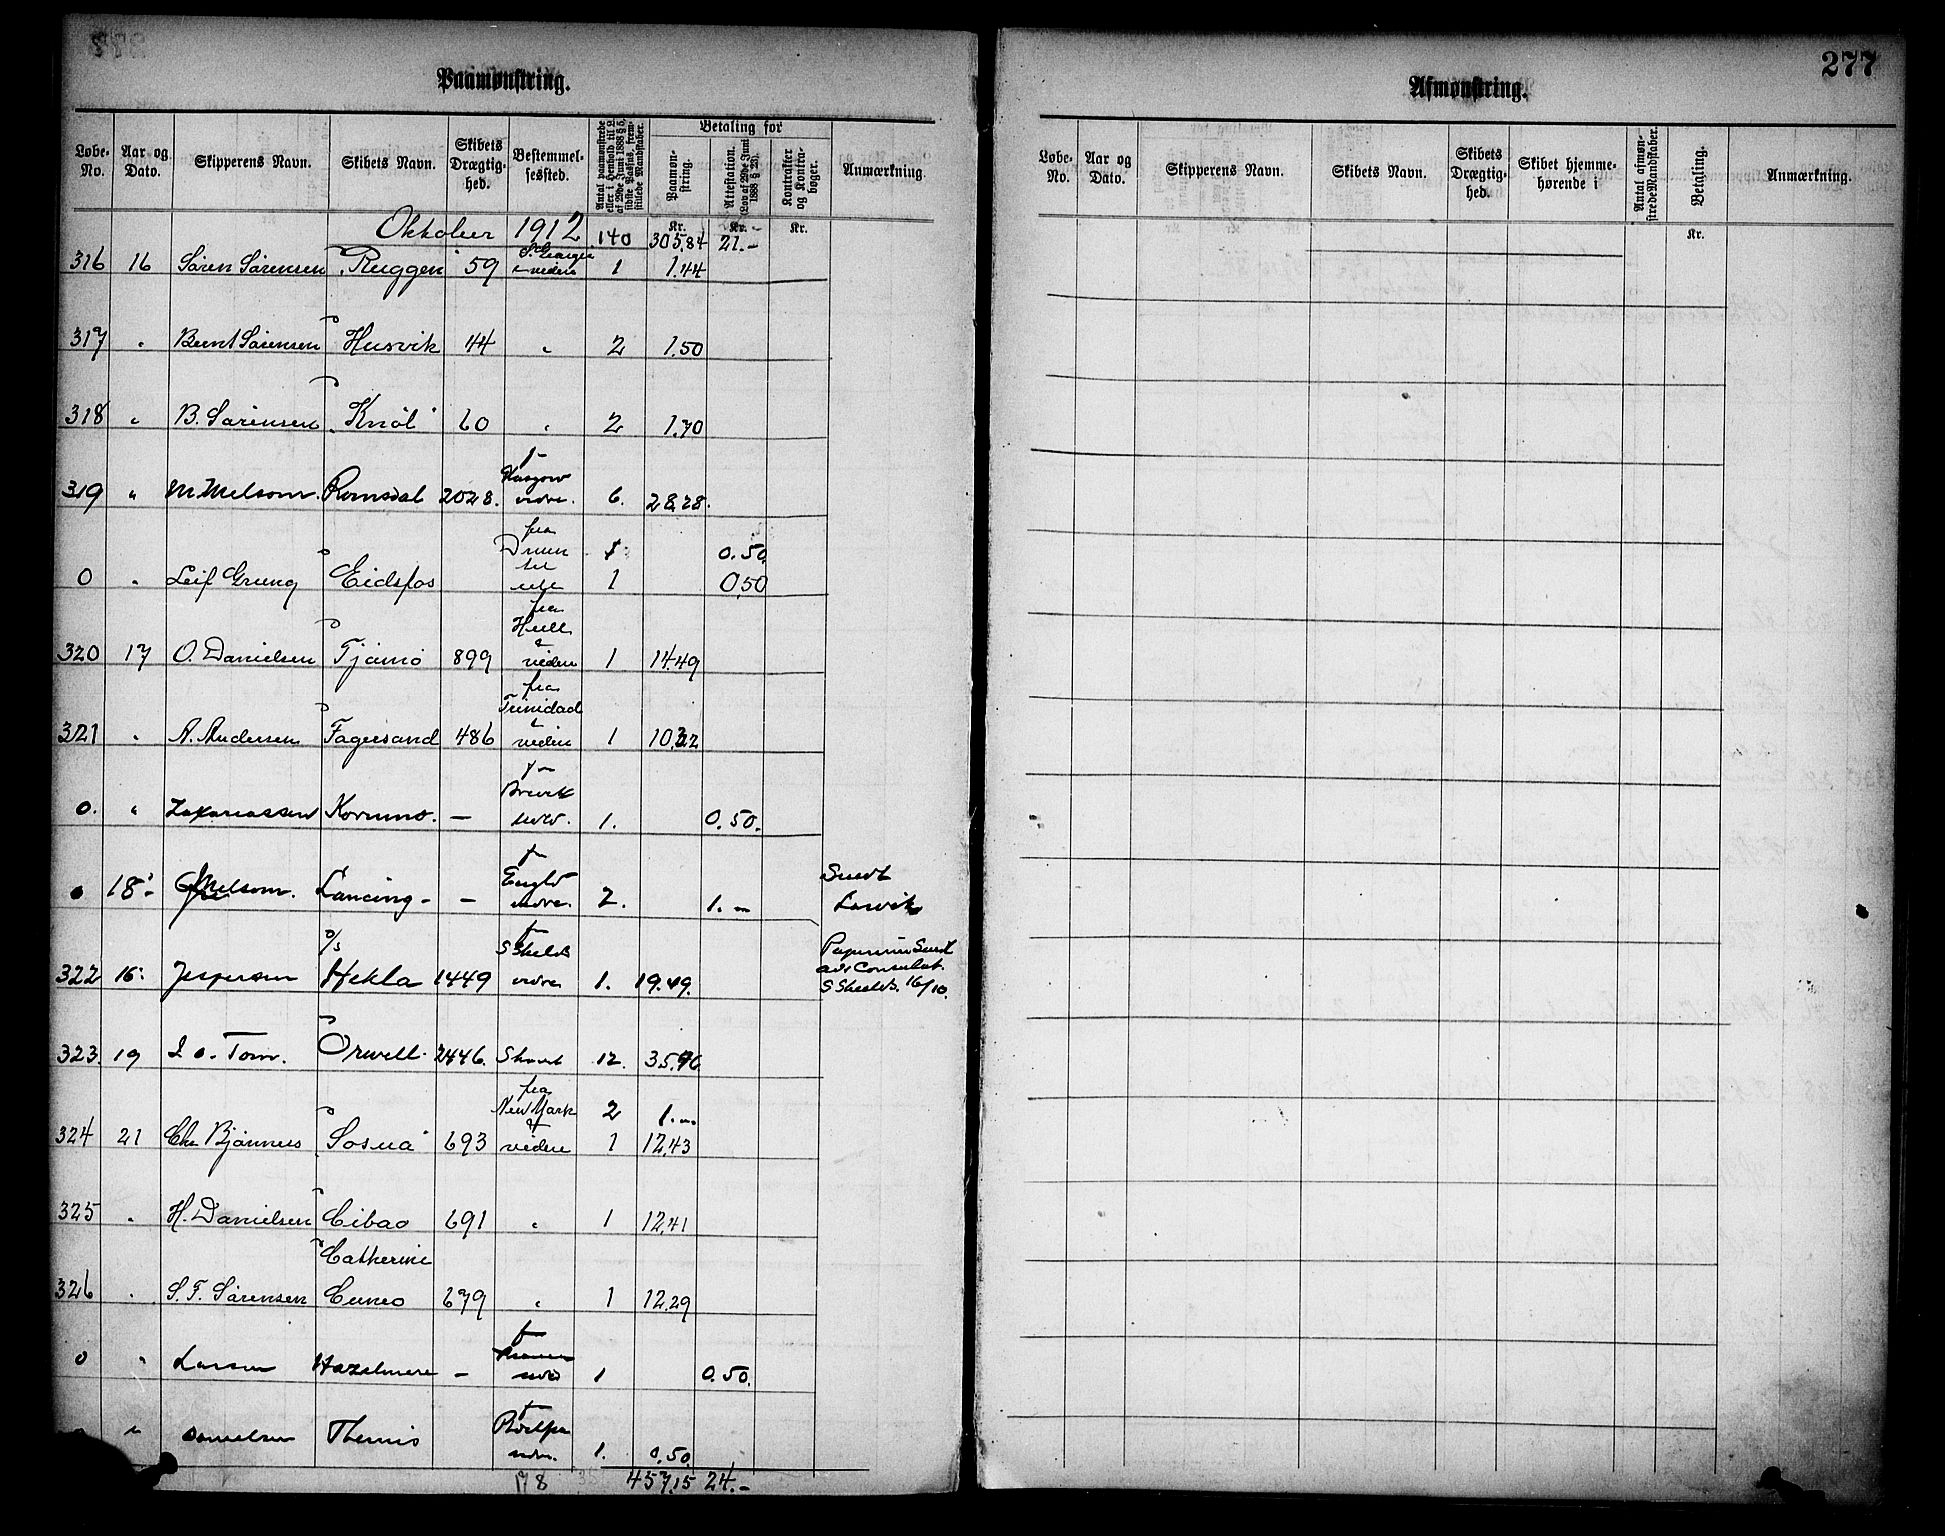 Paamønstring.
Løbe-No. Aar og Dato. Skipperens Navn. Skibets Navn. Skibets Drægtig-hed. Bestemmel-sessted. Antal paamønstrede eller i Henhold til 2 af 29de Juni 1888 § 5, sidste Passus, frem-stillede Mandskaber. Betaling for Paamøn-string. Attestation. (Lov af 29de Juni 1888 § 28). Kontrakter og Kontra-bøger. Anmærkning.
Kr. Kr. Kr.
Oktober 1912 140 305,84 21.-
S. Georgia
316 16 Søren Sørensen "Ruggen" 59 videre 1 1.44
317 " Bernt Sørensen Husvik 44 " 2 1.50
318 " B. Sørensen "Knöl" 60 " 2 1.70
Glasgow
319 " M Melsom. Romsdal 2028. vidre. 6. 28,28.
fra
Dmen 1 0.50
til
0 " Leif Grung Eidsfos 1 0,50
fra
Hull
&
320 17 O. Danielsen Tjømø 899 videre 1 14.49
fra
Trinidad
&
321 " A. Andersen Fagersand 486 videre 1 10,22
Brevik
0. " Zakariassen Kornmo. — 1. 0.50.
f
0 18 Melsom. Lancing - - Engld vidre. 2. 1.- Sendt
Larvik
D/S f
S Shields Papirerne Sendt
322 16 Jespersen Hekla 1449 vidre 1. 19.49. Consulat.
S Shields. 16/10.
323. 19 Tom. Orwell. 2446. 12. 35.96
fra
New York 2 1.-
&
324 21 Chr Bjønnes Sosua 693 videre 1 12,43
325 " H. Danielsen Cibao 691 " 1 12,41
Catherine
326 " S. F. Sørensen Cuneo 679 " 1 12.29
f
0 " Larsen Hazelmere - 1 0.50.
f
" Danielsen Themis 1. 0.50.
178 457,15 24.-
277
Afmønstring.
Løbe-No. Aar og Dato. Skipperens Navn. Skibets Navn. Skibets Drægtig-hed. Skibet hjemme-hørende i Antal afmøn-strede Mandskaber. Betaling. Anmærkning.
Kr.